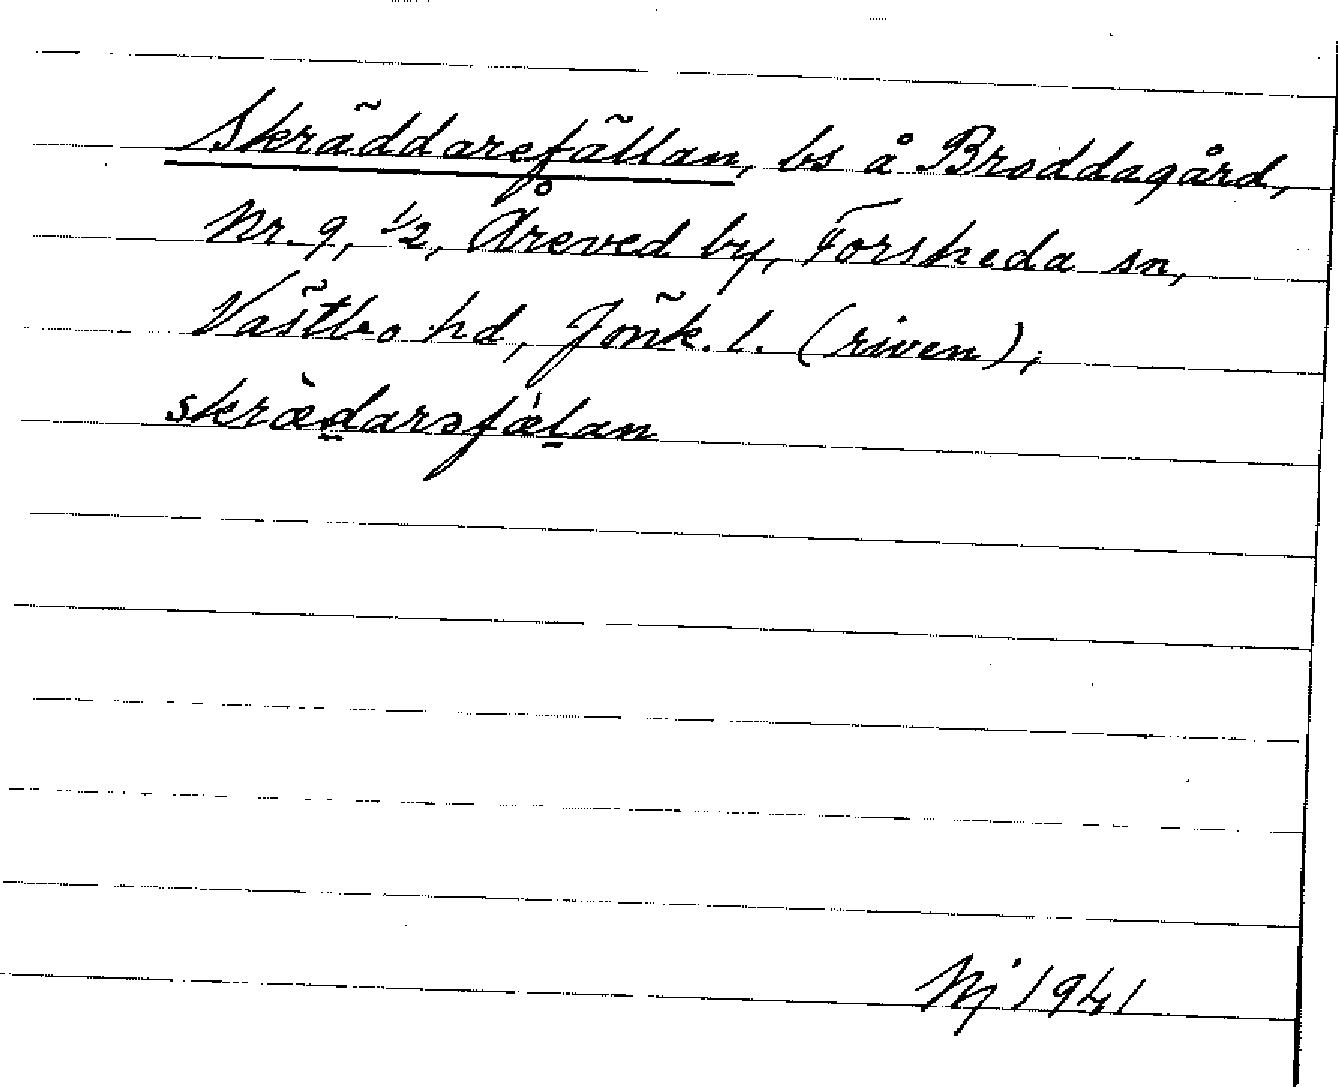 Skräddarefällan, bs å Broddagård,
Nr. 9, ½, Åreved by, Forsheda sn,
Västbo hd, Jönk. l. (riven),
skræ̀d̲arəsfæ̀l̲an
Nj 1941